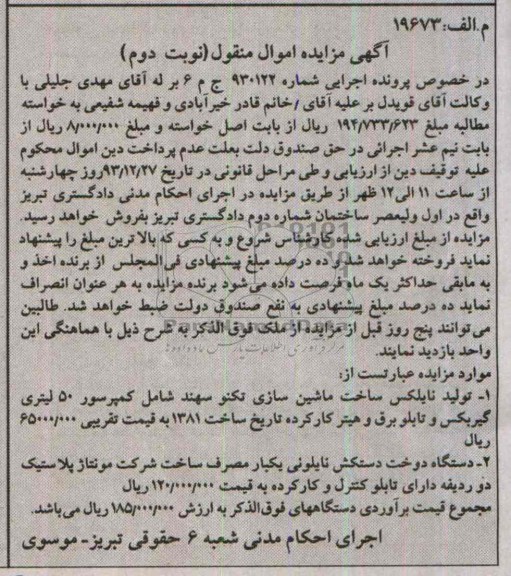 م.الف:۱۹۶۷۳
آگهی مزایده اموال منقول (نوبت دوم)
در خصوص پرونده اجرایی شماره ۹۳۰۱۲۲ ج م ۶ بر له آقای مهدی جلیلی با
وکالت آقای قویدل بر علیه آقای / خانم قادر خیرآبادی و فهیمه شفیعی به خواسته
مطالبه مبلغ ۱۹۴/۷۳۳/۶۲۳ ریال از بابت اصل خواسته و مبلغ ۸/۰۰۰/۰۰۰ ریال از
بابت نیم عشر اجرائی در حق صندوق دلت بعلت عدم پرداخت دین اموال محکوم
علیه توقیف دین از ارزیابی و طی مراحل قانونی در تاریخ ۹۳/۱۲/۲۷روز چهارشنبه
از ساعت ۱۱ الی۱۲ ظهر از طریق مزایده در اجرای احکام مدنی دادگستری تبریز
واقع در اول ولیعصر ساختمان شماره دوم دادگستری تبریز بفروش خواهد رسید.
مزایده از مبلغ ارزیابی شده کارشناس شروع و به کسی که بالا ترین مبلغ را پیشنهاد
نماید فروخته خواهد شد و ده درصد مبلغ پیشنهادی فی المجلس از برنده اخذ و
به مابقی حداکثر یک ماه فرصت داده می شود برنده مزایده به هر عنوان انصراف
نماید ده درصد مبلغ پیشنهادی به نفع صندوق دولت ضبط خواهد شد. طالبین
می توانند پنج روز قبل از مزایده از ملک فوق الذکر به شرح ذیل با هماهنگی این
واحد بازدید نمایند.
موارد مزایده عبارتست از:
۱- تولید نایلکس ساخت ماشین سازی تکنو سهند شامل کمپرسور ۵۰ لیتری
گیربکس و تابلو برق و هیتر کارکرده تاریخ ساخت ۱۳۸۱ به قیمت تقریبی ۶۵۰۰۰/۰۰۰
ریال
۲- دستگاه دوخت دستکش نایلونی یکبار مصرف ساخت شرکت مونتاژ پلاستیک
دو ردیفه دارای تابلو کنترل و کارکرده به قیمت ۱۲۰/۰۰۰/۰۰۰ریال
مجموع قیمت برآوردی دستگاههای فوق الذکر به ارزش ۱۸۵/۰۰۰/۰۰۰ ریال می باشد.
اجرای احکام مدنی شعبه ۶ حقوقی تبریز- موسوی